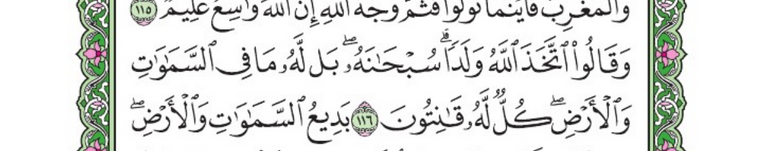 وَالْمَغْرِبُ فَأَيْنَمَا تُوَلُّوا فَثَمَّ وَجْهُ اللَّهِ إِنَّ اللَّهَ وَاسِعٌ عَلِيمٌ ١١٥
وَقَالُوا۟ ٱتَّخَذَ ٱللَّهُ وَلَدًا ۗ سُبْحَـٰنَهُۥ ۖ بَل لَّهُۥ مَا فِى ٱلسَّمَـٰوَٰتِ
وَٱلْأَرْضِ ۖ كُلٌّ لَّهُۥ قَـٰنِتُونَ ١١٦ بَدِيعُ ٱلسَّمَـٰوَٰتِ وَٱلْأَرْضِ ۖ